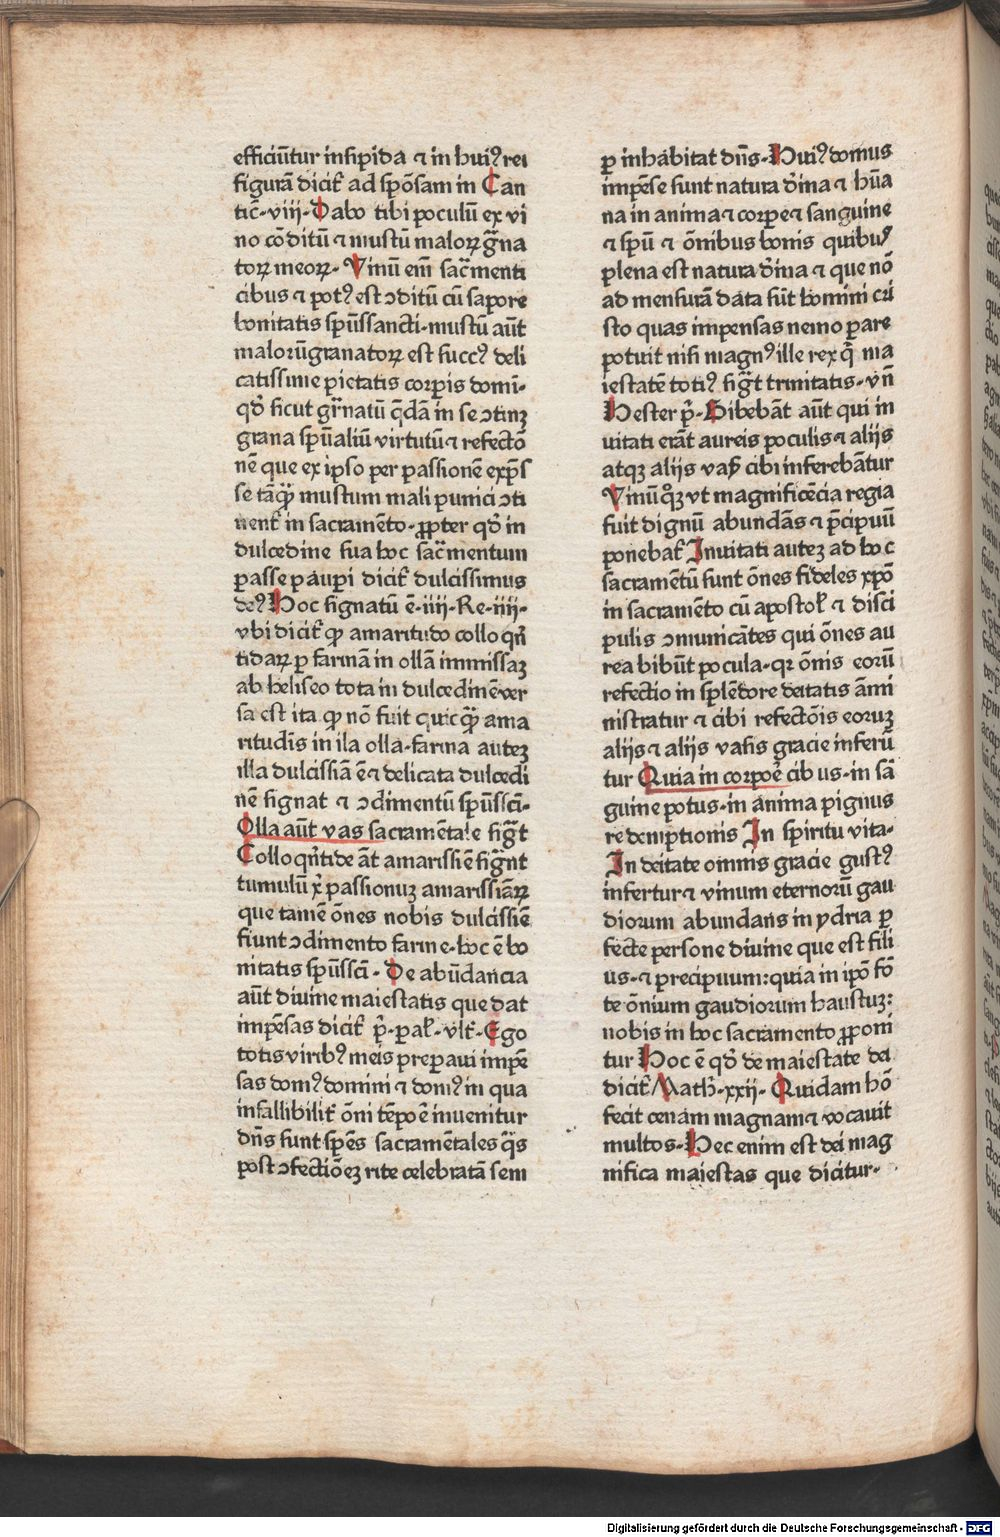 efficiūtur insipida ⁊ in huiꝰ rei
figurā dicit᷑ ad spōsam in Can
tic̄-viii-Dabo tibi poculū ex vi
no cōditū ⁊ mustū maloꝝ g̃na
toꝝ meoꝝ-Vinū eni᷑ sac̃menti
cibus ⁊ potꝰ est ↄditū cū sapore
bonitatis spūssancti-mustū aūt
malorūgranatoꝝ est succꝰ deli
catissime pietatis corpis domi-
qd̄ sicut gr̃natū q̄dā in se ↄtinꝫ
grana spūaliū virtutū⁊ refectō
nē que ex ipso per passionē exp̄s
se tāꝗ̃ mustum mali punici ↄti
nent᷑ in sacramēto-ꝓpter qd̄ in
dulcedine sua hoc sac̃mentum
passe paupi dicit᷑ dulcissimus
deꝰ Hoc signatū ē-iiii-Re-iiii-
vbi dicit᷑ ꝙ amaritudo colloqn̄
tidaꝝ ꝑ farinā in ollā immissaꝫ
ab heliseo tota in dulcedinē ver
sa est ita ꝙ nō fuit quicꝗ̃ ama
ritudis in ila olla-farina autez
illa dulcissiā ē⁊ delicata dulcedi
nē signat ⁊ ↄdimentū spūssci-
Olla aūt vas sacramētale sig̃t
Colloqn̄tide āt amarissiē sig̃nt
tumulū xp̄i passionuꝫ amarissiāꝝ
que tamē ōnes nobis dulcissiē
fiunt ↄdimento farine-hoc ē bo
nitatis spūssci-De abūdancia
aūt diuine maiestatis que dat
impēsas dicit᷑ p̄-pal̄-vlt᷑-Ego
totis viribꝰ meis preparaui impē
sas domꝰ domini ⁊ domꝰ in qua
infallibilit᷑ ōni tēpoē inuenitur
dn̄s sunt spēs sacramētales q̄s
post ↄfectiōeꝫ rite celebratā sem
ꝑ inhabitat dn̄s-Huiꝰ domus
impēse sunt natura diīna ⁊ hūa
na in anima⁊ corpe⁊ sanguine
⁊ spū ⁊ ōnibus bonis quibus
plena est natura diīna ⁊ que nō
ad mensurā data sūt homini cri
sto quas impensas nemo ꝑare
potuit nisi magnꝰ ille rex q̄ ma
iestatē totiꝰ sig̃t trinitatis-vn̄
Hester p̄-Bibebāt aūt qui in
uitati erāt aureis poculis⁊ aliis
atqꝫ aliis vas̄ cibi inferebātur
Vinū qꝫ vt magnificēcia regia
fuit dignū abundās ⁊ p̄cipuū
ponebat᷑ Inuitati autez ad hoc
sacramētū sunt ōnes fideles xp̄o
in sacramēto cū apostol̄ ⁊ disci
pulis ↄmunicātes qui ōnes au
rea bibūt pocula-qꝛ ōnis eorū
refectio in splēdore deitatis āmi
nistratur ⁊ cibi refectōis eoruꝫ
aliis⁊ aliis vasis gracie inferū
tur Quia in corpoē cibus-in sā
guine potus-in anima pignus
redemptionis In spiritu vita-
In deitate omnis gracie gustꝰ
infertur⁊ vinum eternorū gau
diorum abundans in ydria ꝑ
fecte persone diuine que est fili
us-⁊ precipuum:quia in ipō fō
te ōnium gaudiorum haustuꝫ:
nobis in hoc sacramento ꝓponi
tur Hoc ē qd̄ de maiestate dei
dicit᷑ Math̄-xxii-Quidam hō
fecit cenam magnam⁊ vocauit
multos-Hec enim est dei mag
nifica maiestas que dicitur-
Digitalisierung gefördert durch die Deutsche Forschungsgemeinschaft - DFG